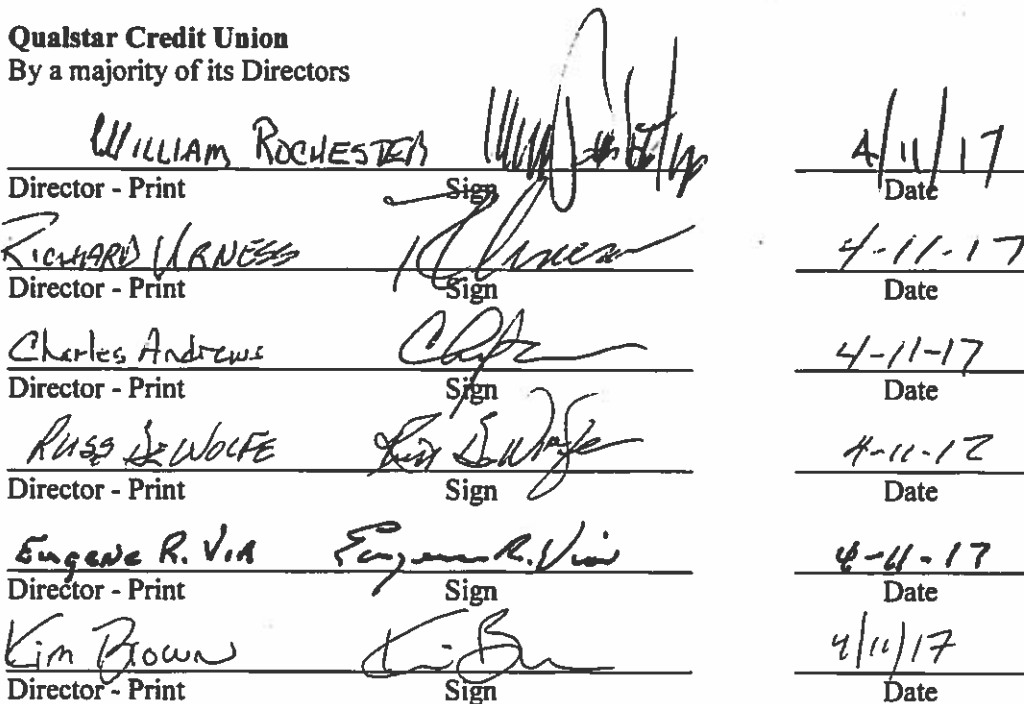 Qualstar Credit Union
By a majority of its Directors
WILLIAM ROCHESTER 4/11/17
Director - Print Sign Date
RICHARD URNESS 4-11-17
Director - Print Sign Date
Charles Andrews 4-11-17
Director - Print Sign Date
RUSS DEWOLFE Russ DeWolfe 4-11-17
Director - Print Sign Date
Eugene R. VIA Eugene R. Via 4-11-17
Director - Print Sign Date
Kim Brown 4/11/17
Director - Print Sign Date